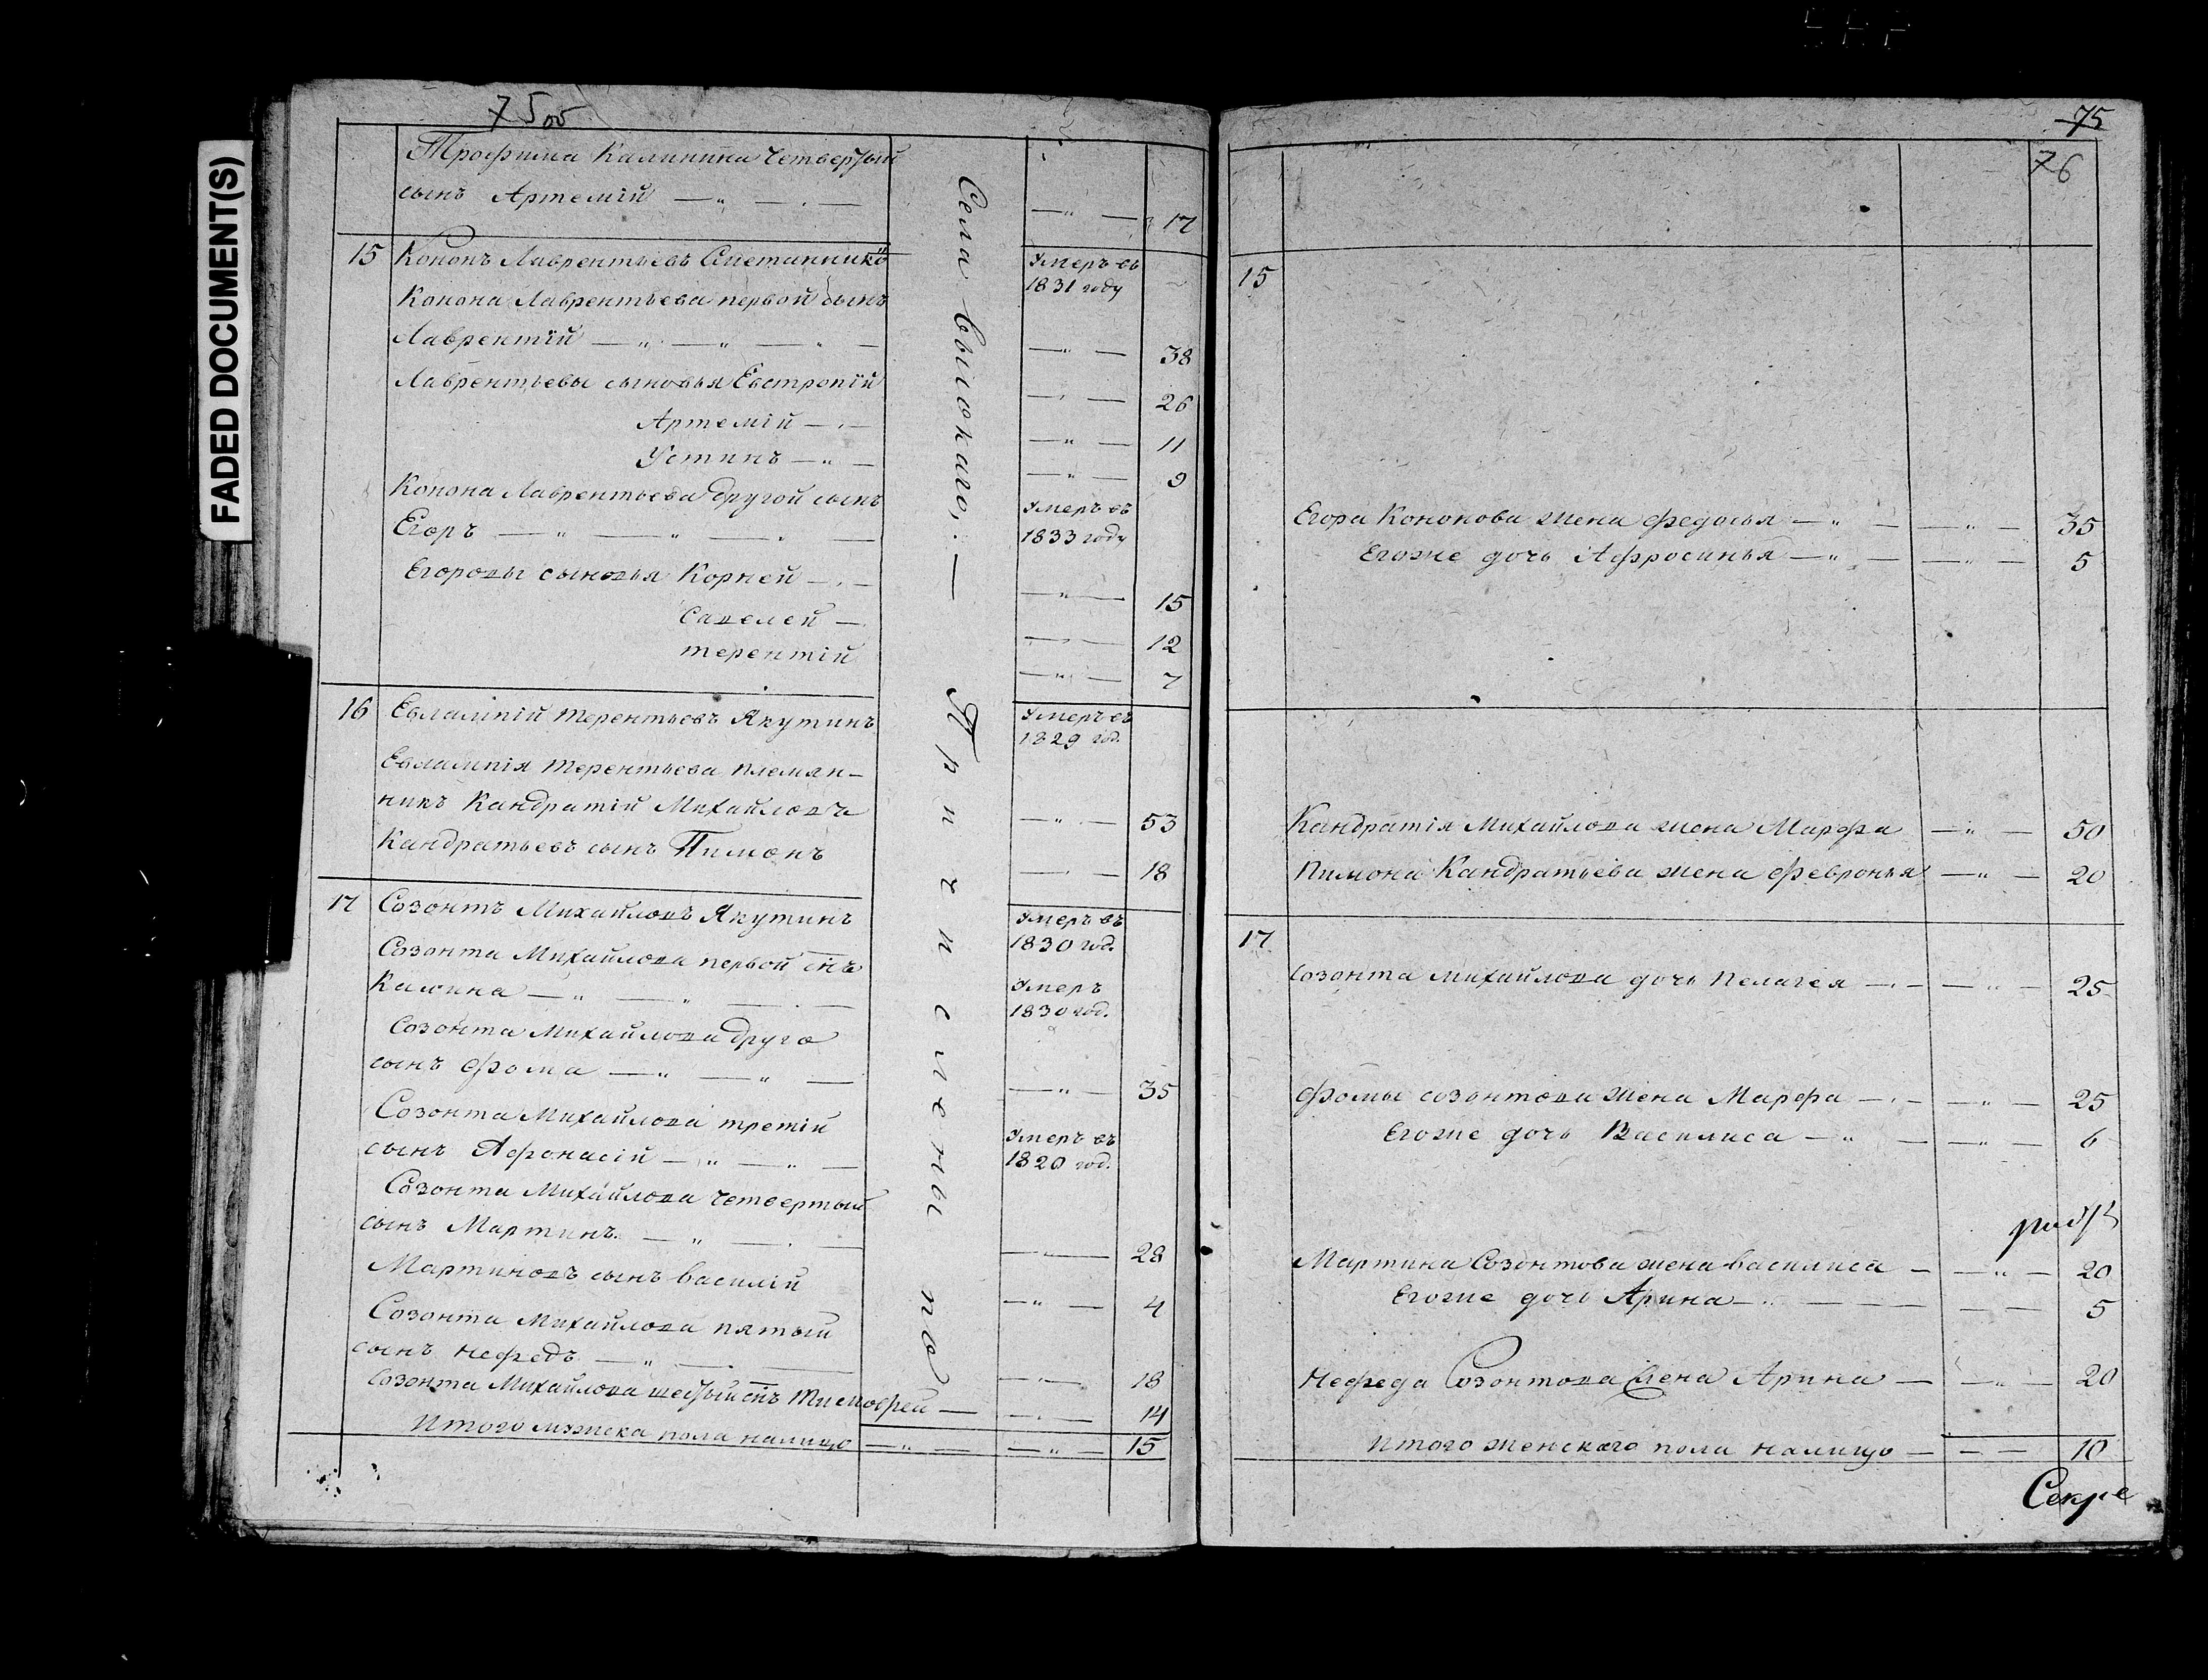 FADED DOCUMENT(S)
75об
Трофима Калинина четвертый
сынъ Артемій — „ — „ — — „ — 17
15 Кононъ Лаврентьевъ Сметанниковъ Умеръ въ
Конона Лаврентьева первой сынъ 1831 году
Лаврентій — „ — „ — „ — — „ — 38
Лаврентьевы сыновья Евстропій — „ — 26
Артемій — „ — — „ — 11
Устинъ — „ — — „ — 9
Конона Лаврентьева другой сынъ Умеръ въ
Егоръ — „ — „ — „ — 1833 году
Егоровы сыновья Корней — „ — — „ — 15
Савелей — — „ — 12
терентій — „ — 7
16 Евлампій Терентьевъ Якутинъ Умеръ въ
1829 год.
Евлампія Терентьева племян–
никъ Кандратій Михайловъ — „ — 53
Кандратьевъ сынъ Пимонъ — „ — 18
17 Созонтъ Михайловъ Якутинъ Умеръ въ
Созонта Михайлова первой снъ 1830 год.
Калина — „ — „ — „ — Умеръ
1830 год.
Созонта Михайлова друго
сынъ Фома — „ — „ — — „ — 35
Созонта Михайлова третій Умеръ въ
сынъ Афонасій — „ — „ — 1820 год.
Созонта Михайлова четвертый
сынъ Мартинъ — „ — „ — — „ — 28
Мартиновъ сынъ василій — „ — 4
Созонта Михайлова пятый
сынъ Нефедъ — „ — „ — — „ — 18
Созонта Михайлова шестый снъ Тимофей — — „ — 14
Итого мужеска пола налицо — „ — — „ — 15
Села высокаго. —
Причисленные по
75
76
15
Егора Кононова жена федосья — „ — — „ — 35
Егоже дочь Афросинья — „ — — „ — 5
Кандратія Михайлова жена Марфа — „ — 50
Пимона Кандратьева жена февронья — „ — 20
17
Созонта михайлова дочь пелагея — „ — — „ — 25
Фомы созонтова жена Марфа — „ — — „ — 25
Егоже дочь Василиса — „ — — „ — 6
Мартина Созонтова жена василиса — — „ — 20
Егоже дочь Арина — „ — — — — 5
Нефеда Созонтова жена Арина — — „ — 20
Итого женскаго пола налицо — — — 10
Секре